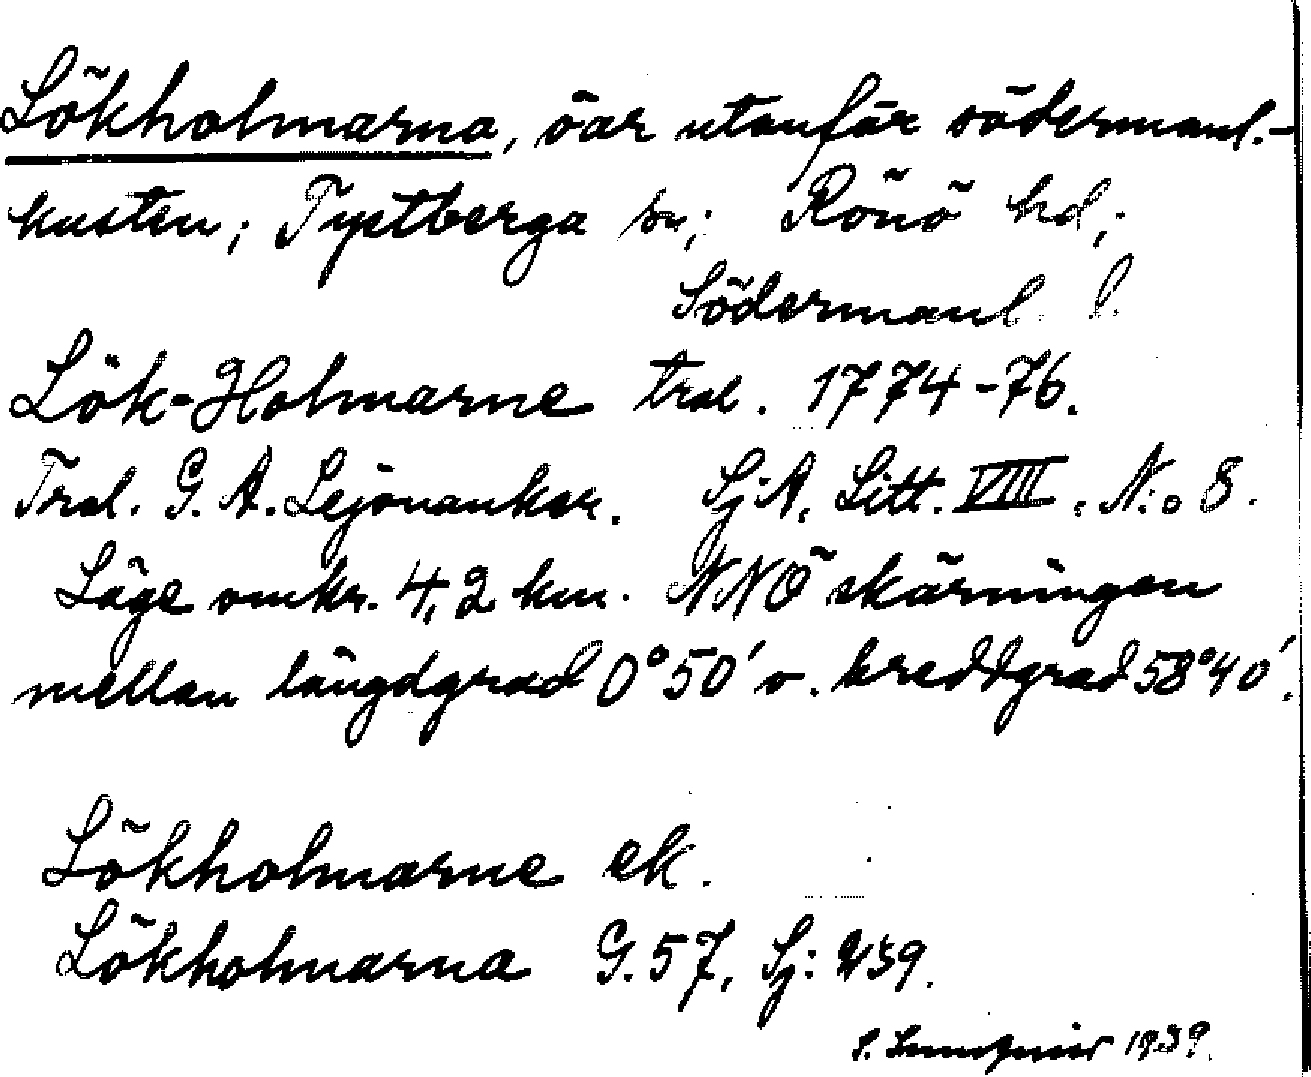 Lökholmarna, öar utanför södermanl.-
kusten; Tystberga sn; Rönö hd;
Södermanl. l.
Lök-Holmarne trol. 1774-76.
Trol. G. A. Lejonankar. Sj.A. Litt. VIII. N:o 8.
Läge omkr. 4,2 km. NNÖ skärningen
mellan längdgrad 0°50' o. breddgrad 58°40'.
Lökholmarne ek.
Lökholmarna G. 57, Sj: 239.
1939.